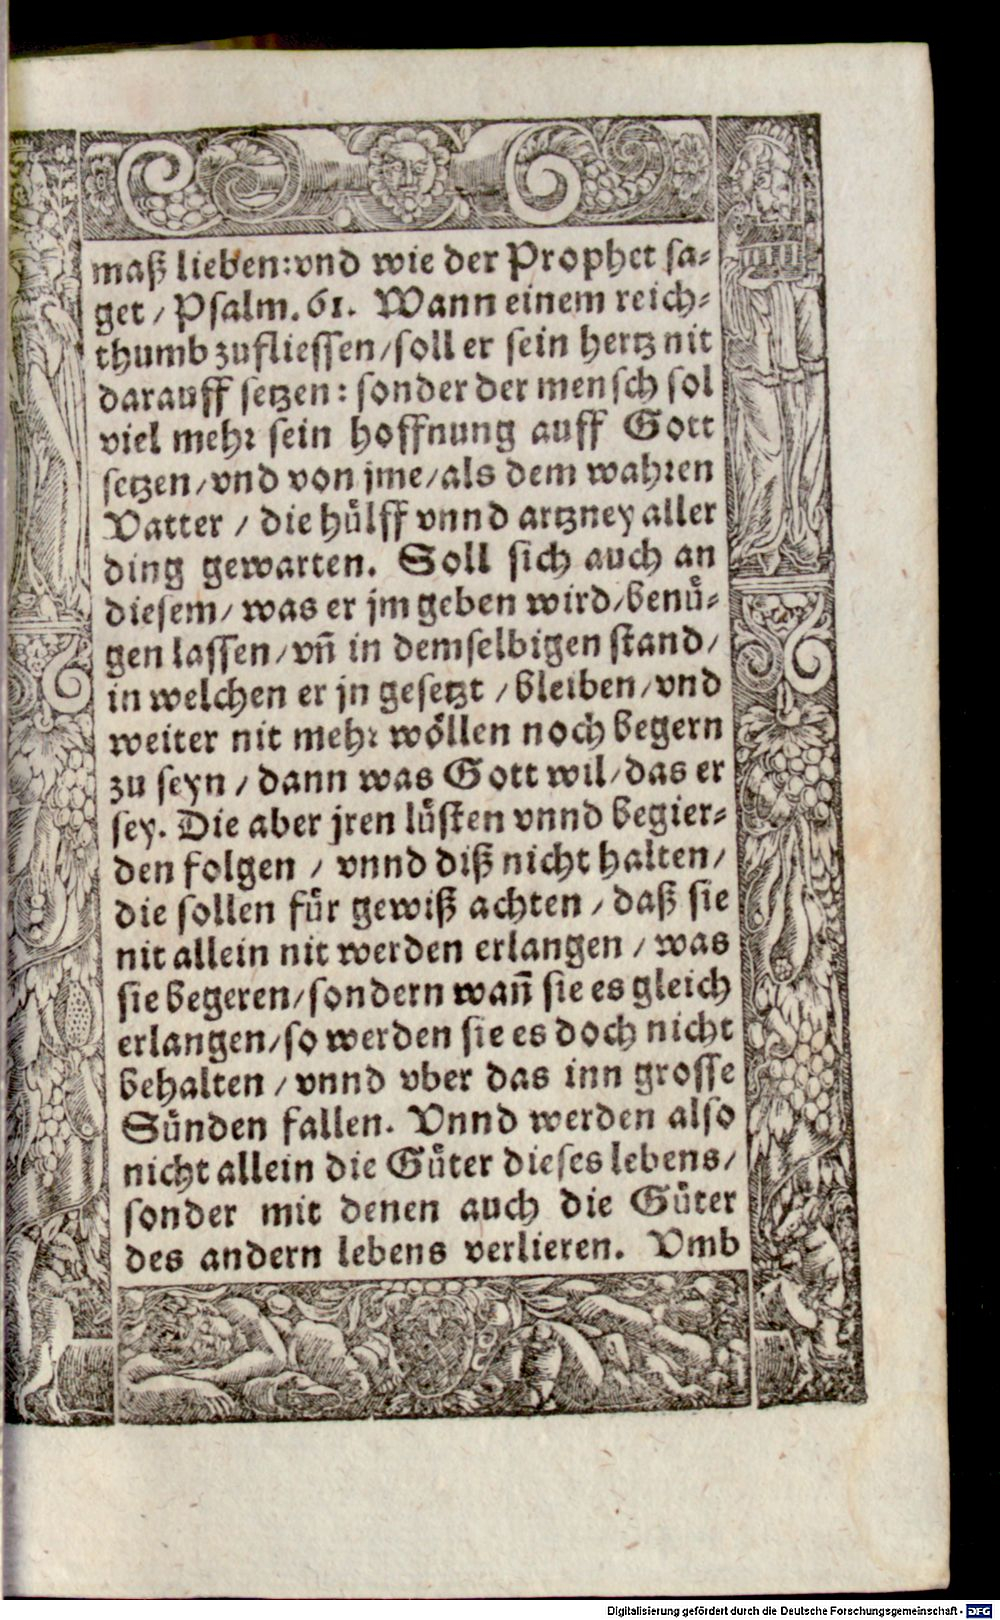 maß lieben: vnd wie der Prophet sa-
get / Psalm. 61. Wann einem reich-
thumb zufliessen / soll er sein hertz nit
darauff setzen: sonder der mensch sol
viel mehr sein hoffnung auff Gott
setzen / vnd von jme / als dem wahren
Vatter / die hülff vnnd artzney aller
ding gewarten. Soll sich auch an
diesem / was er jm geben wird / benü-
gen lassen / vñ in demselbigen stand /
in welchen er jn gesetzt / bleiben / vnd
weiter nit mehr wöllen noch begern
zu seyn / dann was Gott wil / das er
sey. Die aber jren lüsten vnnd begier-
den folgen / vnnd diß nicht halten /
die sollen für gewiß achten / daß sie
nit allein nit werden erlangen / was
sie begeren / sondern wañ sie es gleich
erlangen / so werden sie es doch nicht
behalten / vnnd vber das inn grosse
Sünden fallen. Vnnd werden also
nicht allein die Güter dieses lebens /
sonder mit denen auch die Güter
des andern lebens verlieren. Vmb
Digitalisierung gefördert durch die Deutsche Forschungsgemeinschaft - DFG